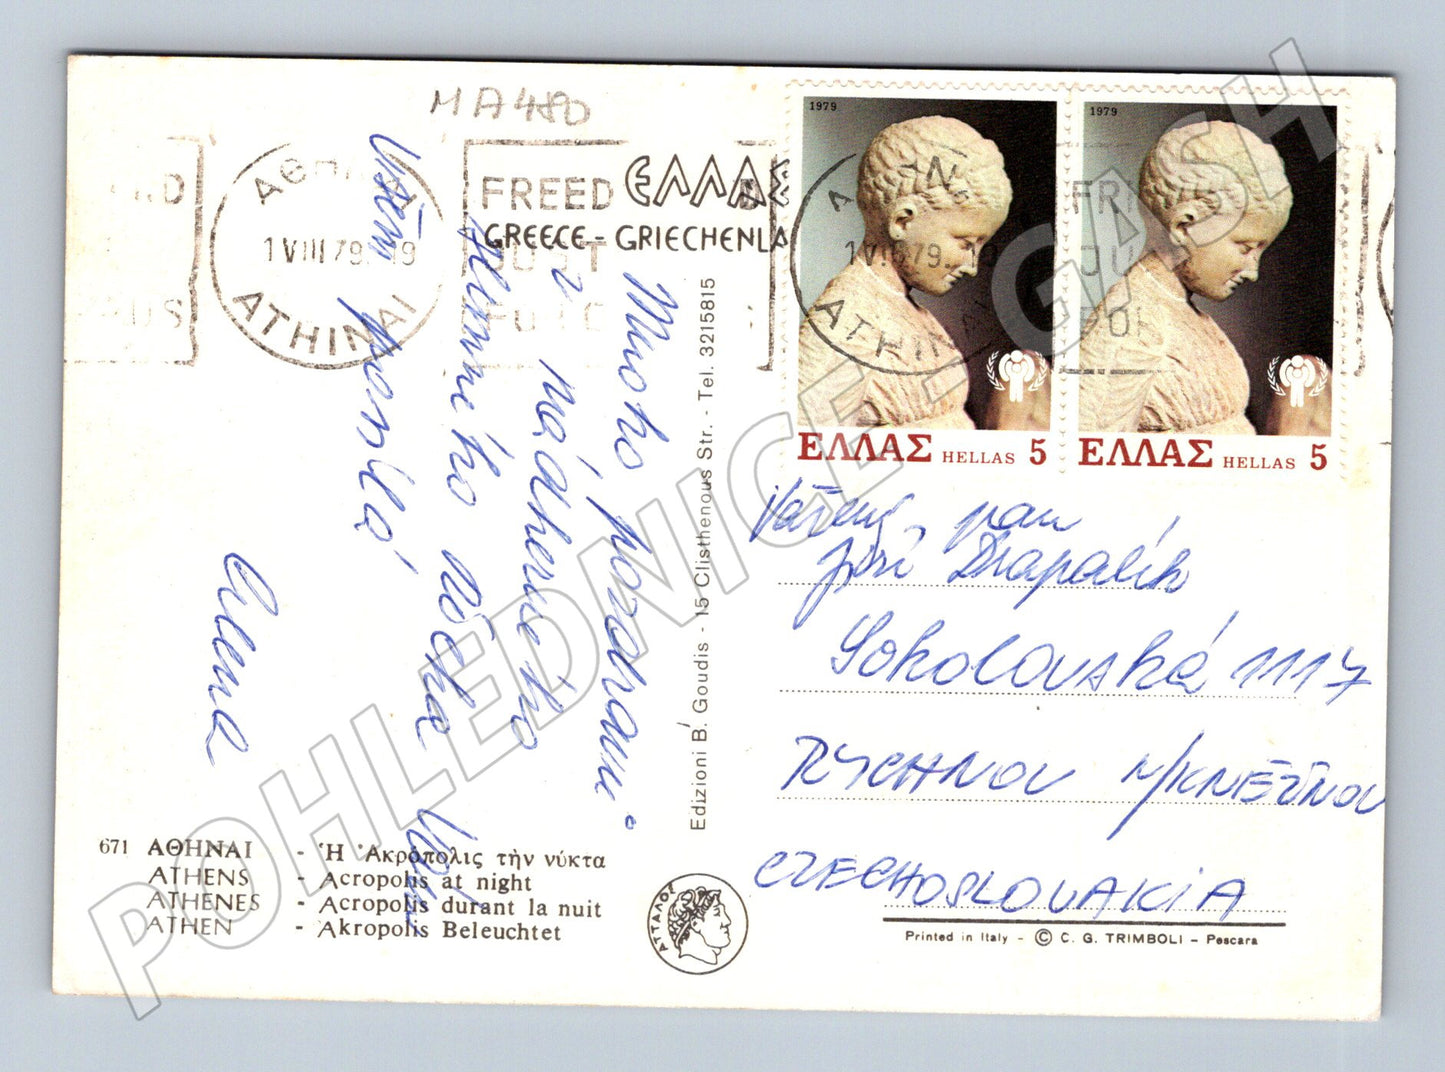 MA480
ΑΘΗΝΑΙ
1 VIII 79 19
ATHINAI
FREED
JUST
ΕΛΛΑΣ
GREECE - GRIECHENLA
1979
ΕΛΛΑΣ HELLAS 5
1979
ΕΛΛΑΣ HELLAS 5
Mnoho pozdravů
z nádherného
slunného Řecka
Vám
všem posílá
Alena
Vážený pan
Drapalík
Sokolovská 1117
RYCHNOV N/KNĚŽNOU
CZECHOSLOVAKIA
Edizioni B. Goudis - 15 Clisthenous Str. - Tel. 3215815
671 ΑΘΗΝΑΙ - Ἡ Ἀκρόπολις τὴν νύκτα
ATHENS - Acropolis at night
ATHENES - Acropolis durant la nuit
ATHEN - Akropolis Beleuchtet
ΑΤΤΑΛΟΣ
Printed in Italy - © C. G. TRIMBOLI - Pescara
POHLEDNICE_GASH